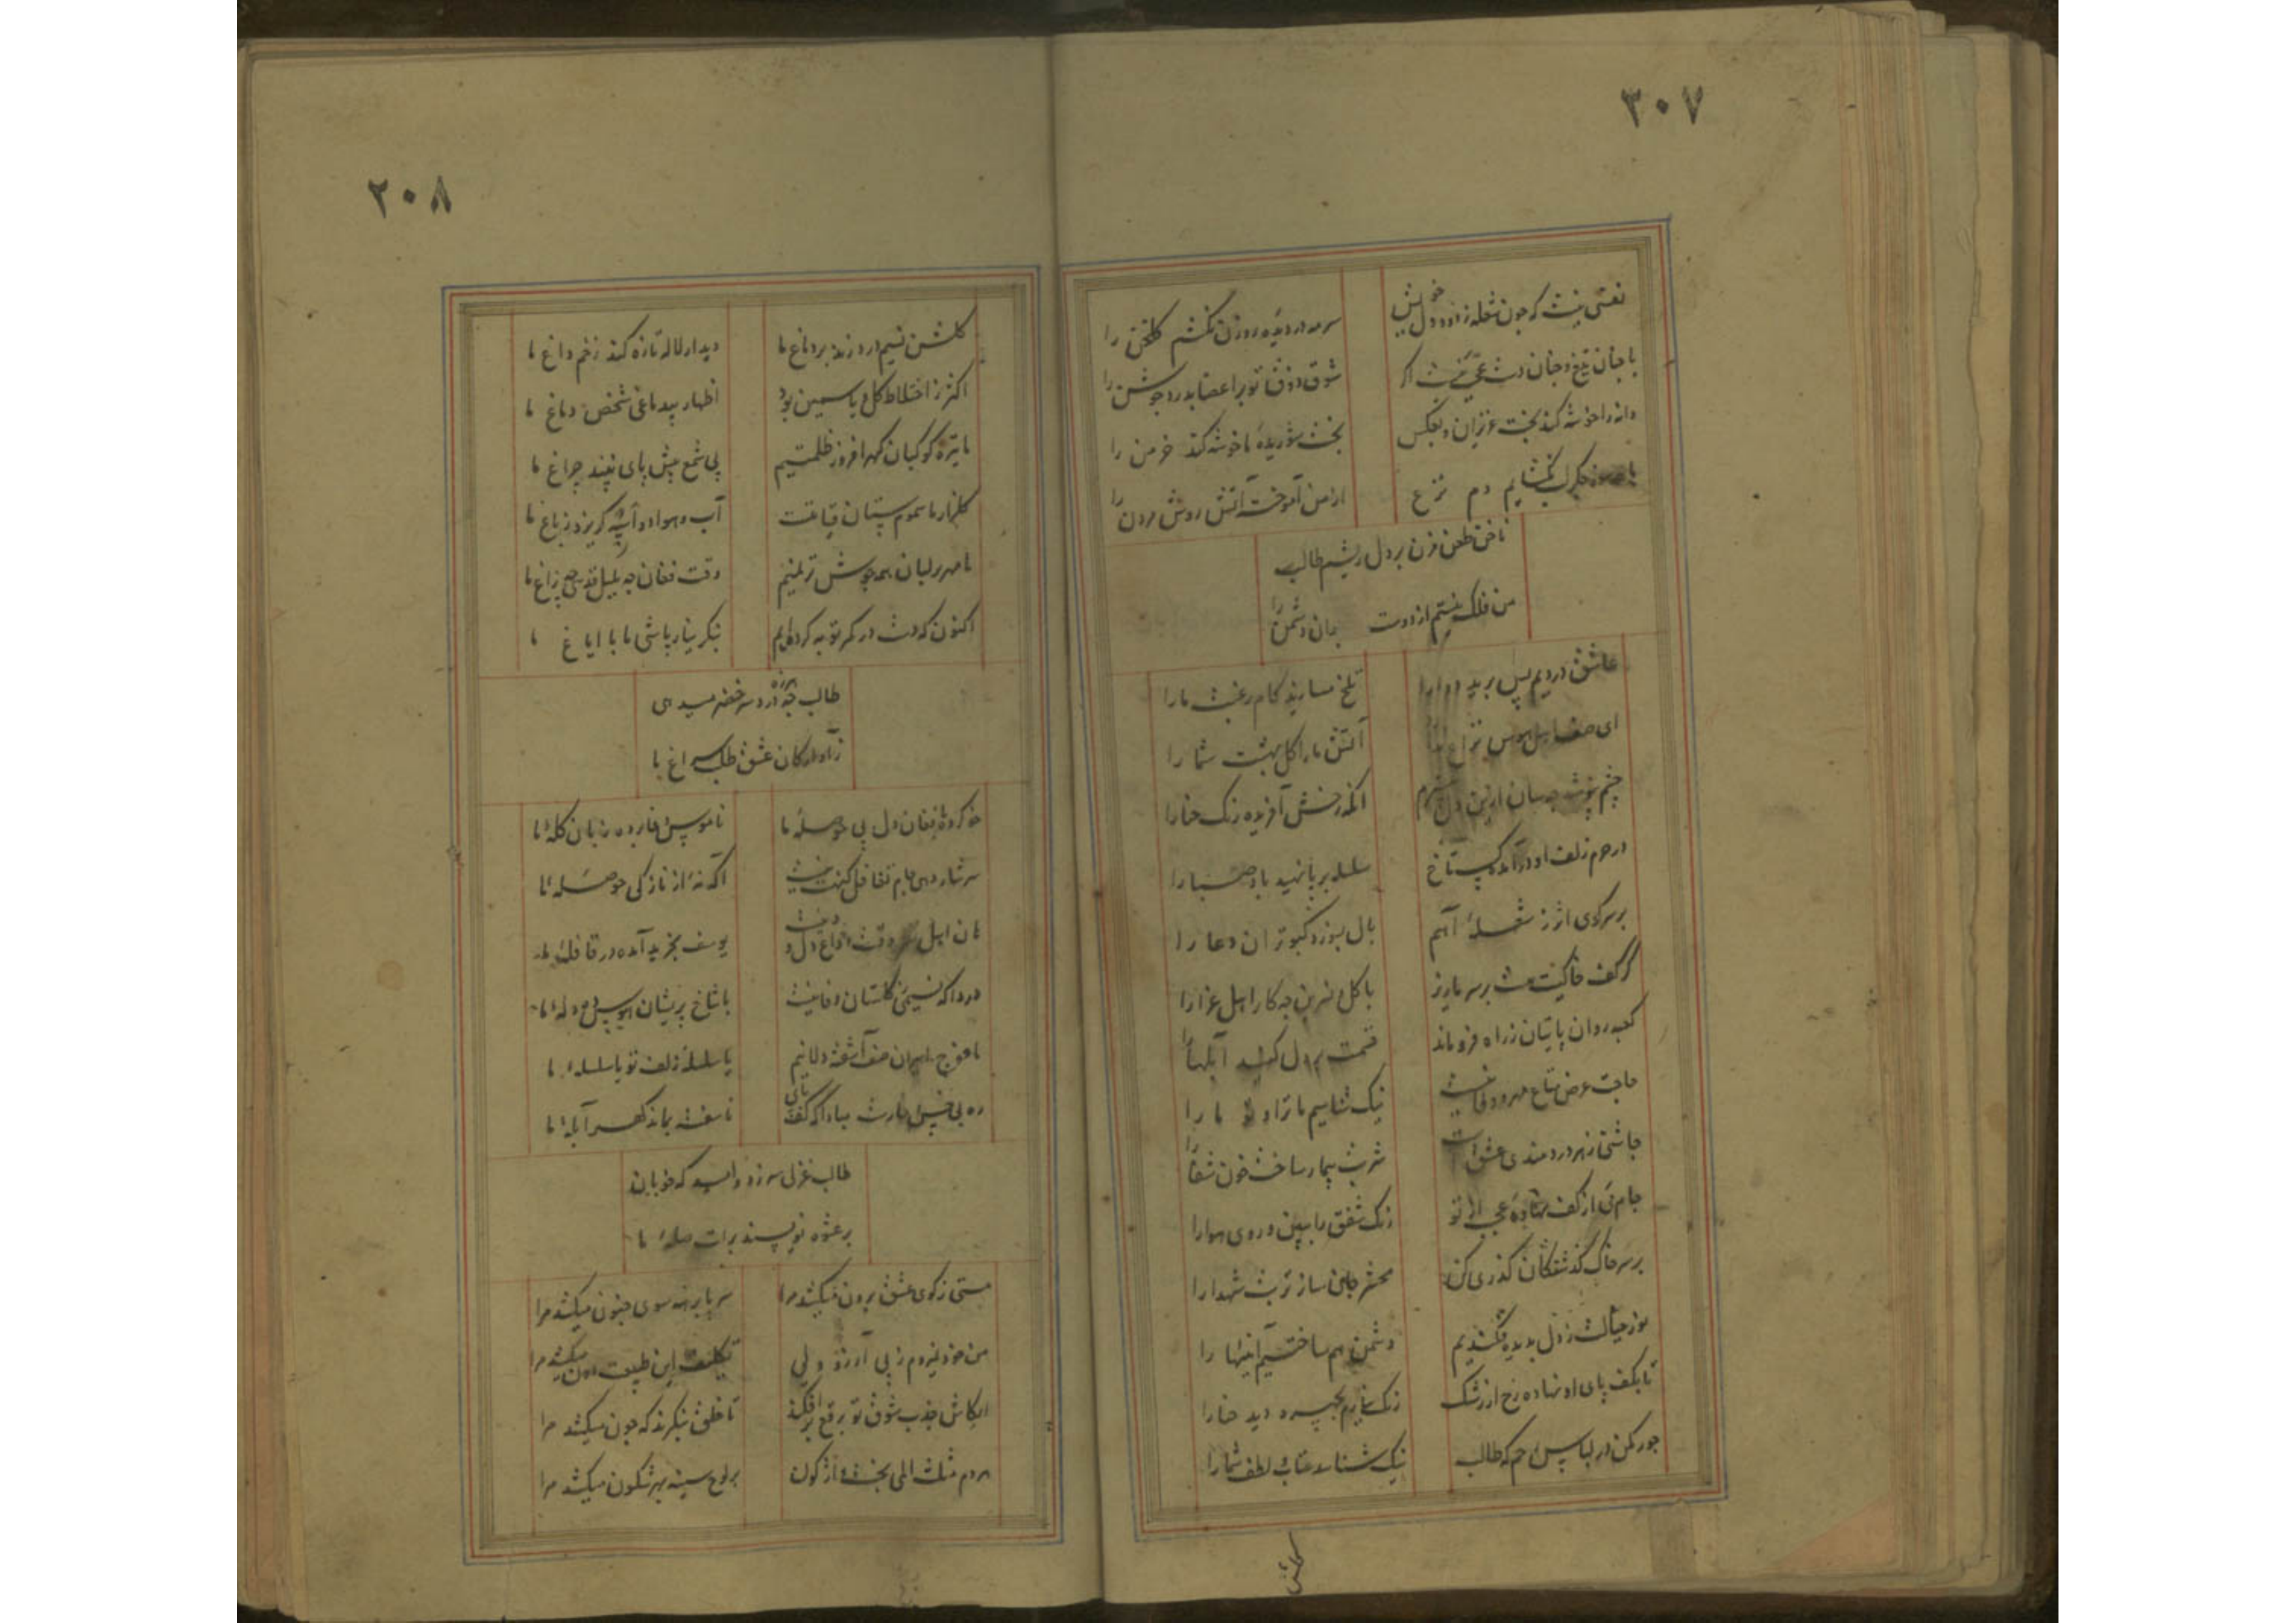 ۳۰۷
نعشی نیست که چون شعله ز دود دل خویش
سرمه در دیده روزن نکشم گلخن را
با چنان تیغ و چنان دست عجب نیست اگر
شوق ذوق تو بر اعضا بدرد جوشن را
دانه را خوشه کند بخت عزیزان و بعکس
بخت شوریده ما خوشه کند خرمن را
لب نگشایم دم نزع
از من آموخت آتش روش مردن را
ناخن طعن مزن بر دل ریشم طالب
من فلک نیستم از دوست بدان دشمن را
عاشق دردیم پس برید دوا را
تلخ مسازید کام رغبت ما را
ای اهل هوس نزاع
آتش ما را گل بهشت شما را
چشم بپوشد چسان ازین دل
آنکه ز خونش آفریده رنگ حنا را
در حرم زلف او درآمده گستاخ
سلسله بر پا نهید باد صبا را
بر سر کوی اثر ز شعله آهم
بال بسوزد کبوتران دعا را
گر کف خاکیست مشت بر سر ما ریز
با گل و نسرین چه کار اهل عزا را
کعبه روان پایتان ز راه فرو ماند
قسمت بر دل کنید آبلها را
حاجت عرض متاع مهر و وفا نیست
نیک شناسیم ما ترا و تو ما را
چاشنی زهر دردمندی عشق است
شربت بیمار ساخت خون شفا را
جام می از کف نهاده عجب از تو
رنگ شفق را ببین و روی هوا را
بر سر خاک گذشتگان گذری کن
محشر جان ساز تربت شهدا را
نور خیالت ز دل بدیده فکندیم
دشمن هم ساختیم آینها را
تا بکف پای او نهاده رخ از رشک
رنگ نداریم بچهره دید حنا را
جور مکن در لباس رحم که طالب
نیک شناسد عتاب و لطف شما را
۲۰۸
گلشن نسیم درد وزید بر دماغ ما
دیدار لاله تازه کند زخم داغ ما
اکثر ز اختلاط گل و یاسمین بود
اظهار بیدماغی شخص دماغ ما
ما تیره کوکبان گهر افروز ظلمتیم
بی شمع پیش پای نبیند چراغ ما
گلزار ما سموم ستان قیامتست
آب و هوا دو اسپه گریزد ز باغ ما
ما مهر بر لبان همه جوش ترنمیم
وقت فغان چه بلبل قدسی چه زاغ ما
اکنون که دست در کمر توبه کرده‌ایم
بنگر نیاز پاشی ما با ایاغ ما
طالب چه هرزه درد سر خضر میدهی
ز آوارگان عشق طلب سراغ ما
خو کرده فغان دل بی حوصله ما
ناموس وفا برده زبان گله ما
سرشار دهی جام تغافل گنهت نیست
آگه نه‌ای از نازکی حوصله ما
هان اهل نظر وقت وداع دل و دینست
یوسف بخرید آمده در قافله ما
دردا که نسیمی ز گلستان وفا نیست
با شاخ پریشان هوس ده دله ما
ما فوج اسیران صف آشفته دلانیم
یا سلسله زلف تو یا سلسله ما
ره بی خس و خارست مبادا که کف پای
ناسفته بماند گهر آبله ما
طالب غزلی سر زد و امید که خوبان
بر عشوه نویسند برات صله ما
مستی ز کوی عشق برون میکشد مرا
سر پا برهنه سوی جنون میکشد مرا
من خود نمیروم ز پی آرزو ولی
تکلیف این طبیعت دون میکشد مرا
ایکاش جذب شوق تو برقع برافکند
تا خلق بنگرند که چون میکشد مرا
هر دم مثلث المی بخت واژگون
بر لوح سینه بهر شگون میکشد مرا